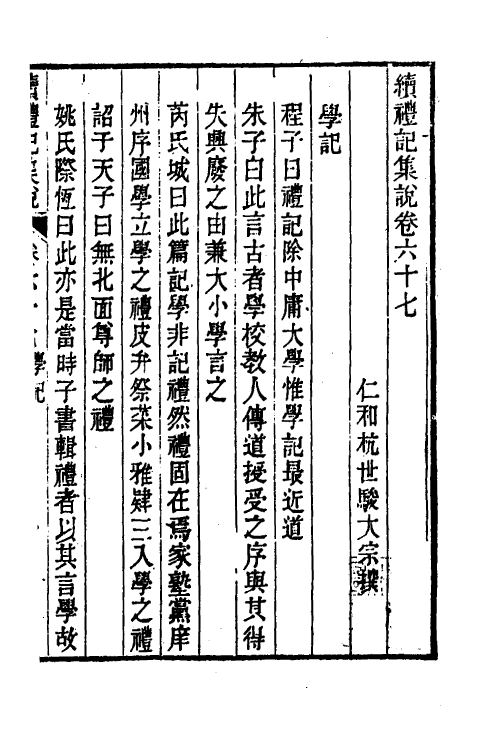 續禮記集說卷六十七
仁和杭世駿大宗撰
學記
程子曰禮記除中庸大學惟學記最近道
朱子曰此言古者學校教人傳道授受之序與其得
失興廢之由兼大小學言之
芮氏城曰此篇記學非記禮然禮固在焉家塾黨庠
州序國學立學之禮皮弁祭菜小雅肄三入學之禮
詔于天子曰無北面尊師之禮
姚氏際恆曰此亦是當時子書輯禮者以其言學故
續禮記集說 卷六十七 學記